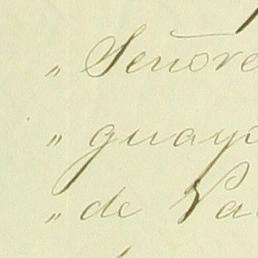 „ Señore
„ guaya
„ de Va